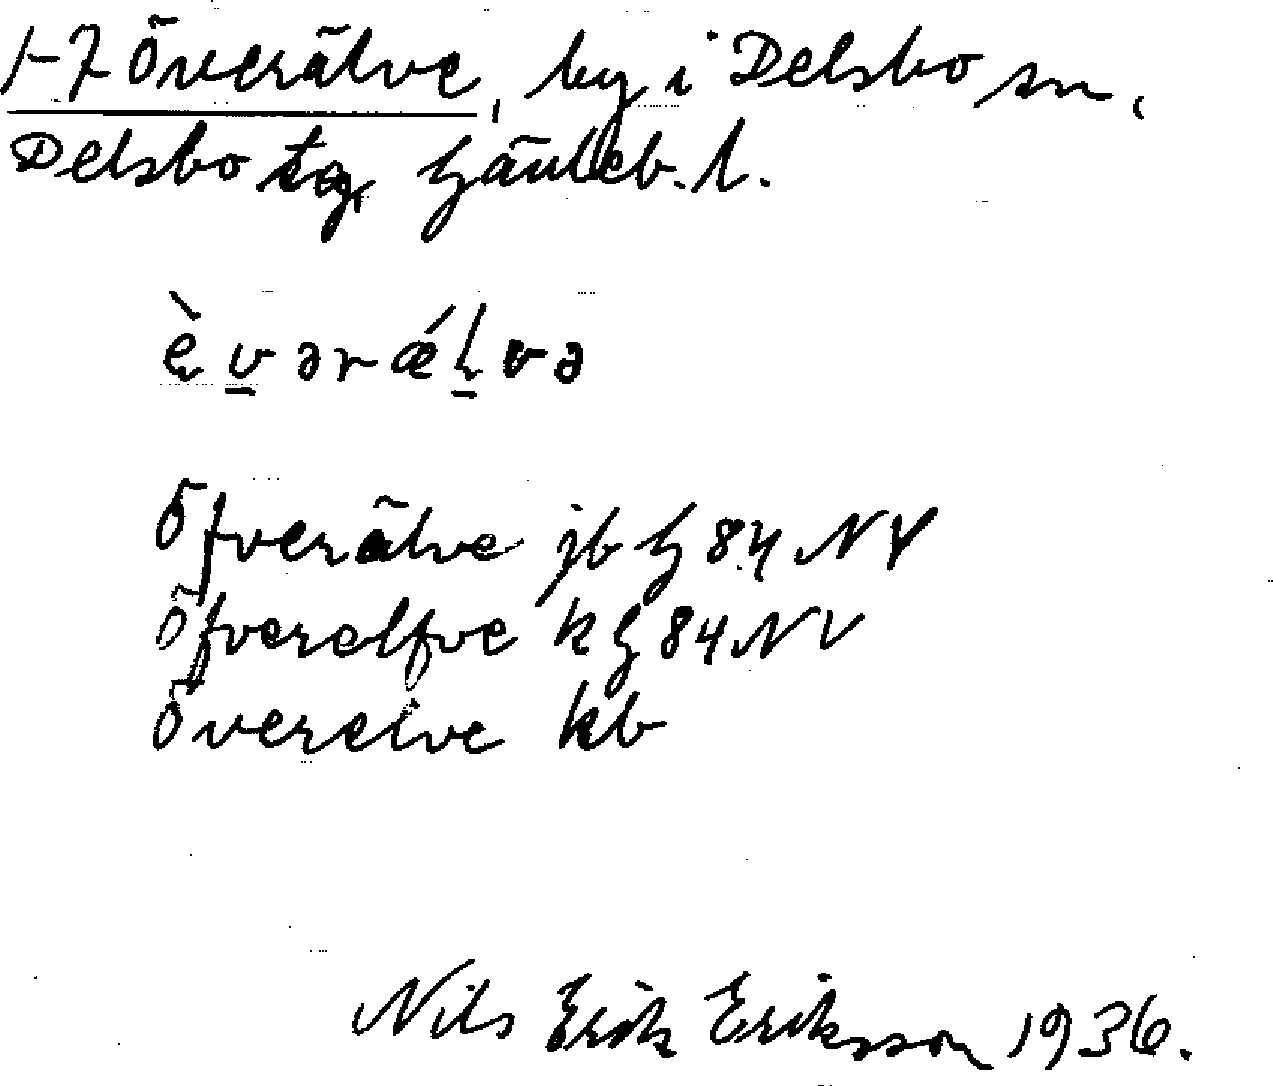 1-7 Överälve, by i Delsbo sn,
Delsbo tg, Gävleb. l.
è v ə r ǽ l v ə
Öfverälve jb G 84 NV
Öfverelfve k G 84 NV
Överelve kb
Nils Erik Eriksson 1936.